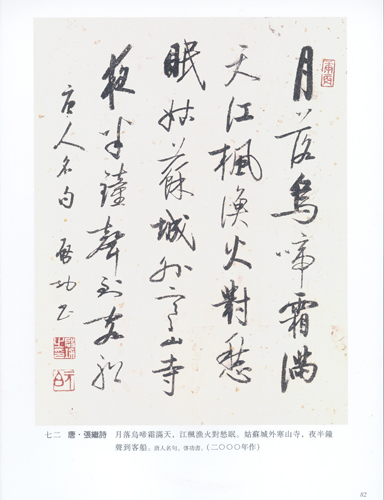 月落烏啼霜滿
天江楓漁火對愁
眠姑蘇城外寒山寺
夜半鐘聲到客船
唐人名句 啟功書
七二 唐·張繼詩 月落烏啼霜滿天，江楓漁火對愁眠。姑蘇城外寒山寺，夜半鐘
聲到客船。唐人名句，啓功書。（二〇〇〇年作）
82